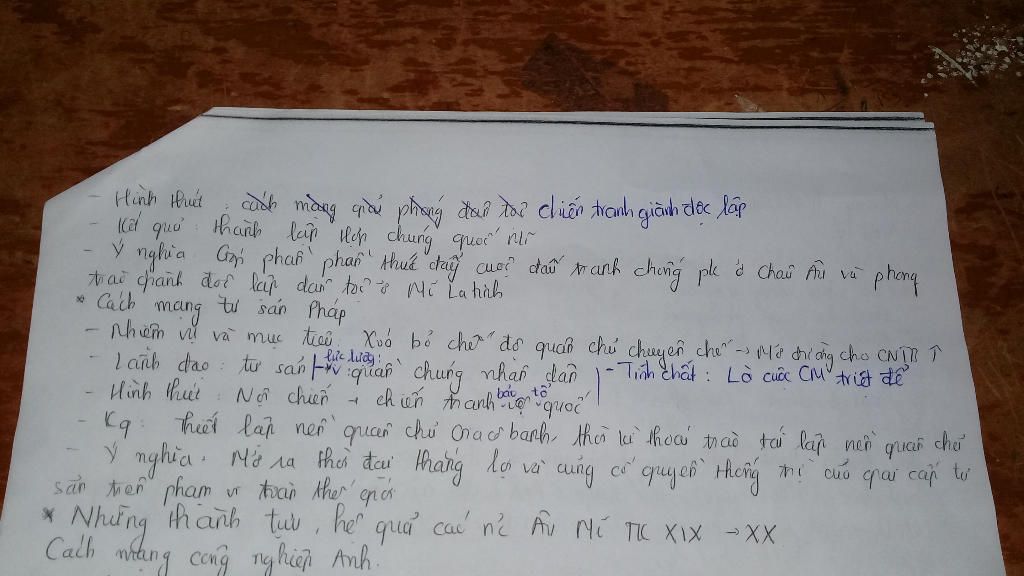 - Hình thức : cách mạng giải phóng dân tộc chiến tranh giành độc lập
- Kết quả : thành lập Hợp chúng quốc Mĩ
- Ý nghĩa : Góp phần phần thúc đẩy cuộc đấu tranh chống pk ở Châu Âu và phong
trào giành độc lập dân tộc ở Mĩ La tinh
* Cách mạng tư sản Pháp
- Nhiệm vụ và mục tiêu : Xóa bỏ chế độ quân chủ chuyên chế → Mở đường cho CNTB ↑
- Lãnh đạo : tư sản lực lượng : quần chúng nhân dân - Tính chất : Là cuộc CM triệt để
- Hình thức : Nội chiến + chiến tranh bảo vệ tổ quốc
- Kq : Thiết lập nền quân chủ Giacôbanh, thời kì thoái trào tái lập nền quân chủ
- Ý nghĩa. Mở ra thời đại thắng lợi và củng cố quyền thống trị của giai cấp tư
sản trên phạm vi toàn thế giới
* Những thành tựu, hệ quả các nc Âu Mĩ TK XIX → XX
Cách mạng công nghiệp Anh.